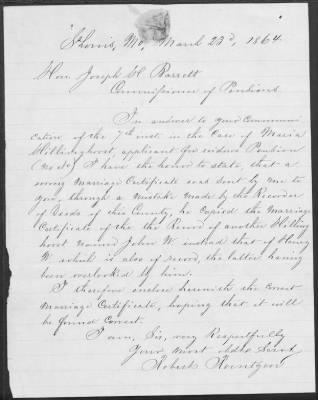 St Louis, Mo, March 23d, 1864.
Hon. Joseph H. Barrett
Commissioner of Pensions.
In answer to your Commun-
ication of the 7th inst in the Case of Maria
Hillinghorst, applicant for widows Pension
I have the honor to state, that a
wrong Marriage Certificate was sent by me to
you, through a mistake made by the Recorder
of Deeds of this County, he copied the Marriage
Certificate of the the Record of another Hilling
horst named John W. instead that of Henry
W which is also of record, the latter having
been overlooked by him.
I therefore enclose herewith the correct
Marriage Certificate, hoping that it will
be found correct.
I am, Sir, very Respectfully
Your most obdt Servt.
Robert